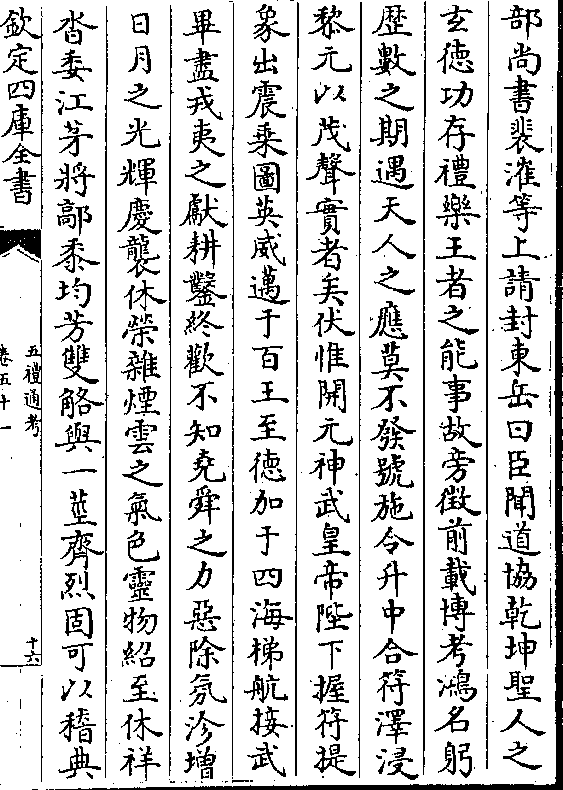 部尚書裴漼等上請封東岳曰臣聞道協乾坤聖人之
玄徳功存禮樂王者之能事故旁徴前載博考鴻名躬
歴數之期遇天人之應莫不發號施令升中合符澤浸
黎元以茂聲實者矣伏惟開元神武皇帝陛下握符提
象出震乗圖英威邁于百王至德加于四海梯航接武
畢盡戎夷之獻耕鑿終歡不知堯舜之力惡除氛沴增
日月之光輝慶襲休榮雜煙雲之氣色靈物紹至休祥
沓委江茅將鄗黍均芳雙觡與一莖齊烈固可以稽典
欽定四庫全書
五禮通考
卷五十一
十六